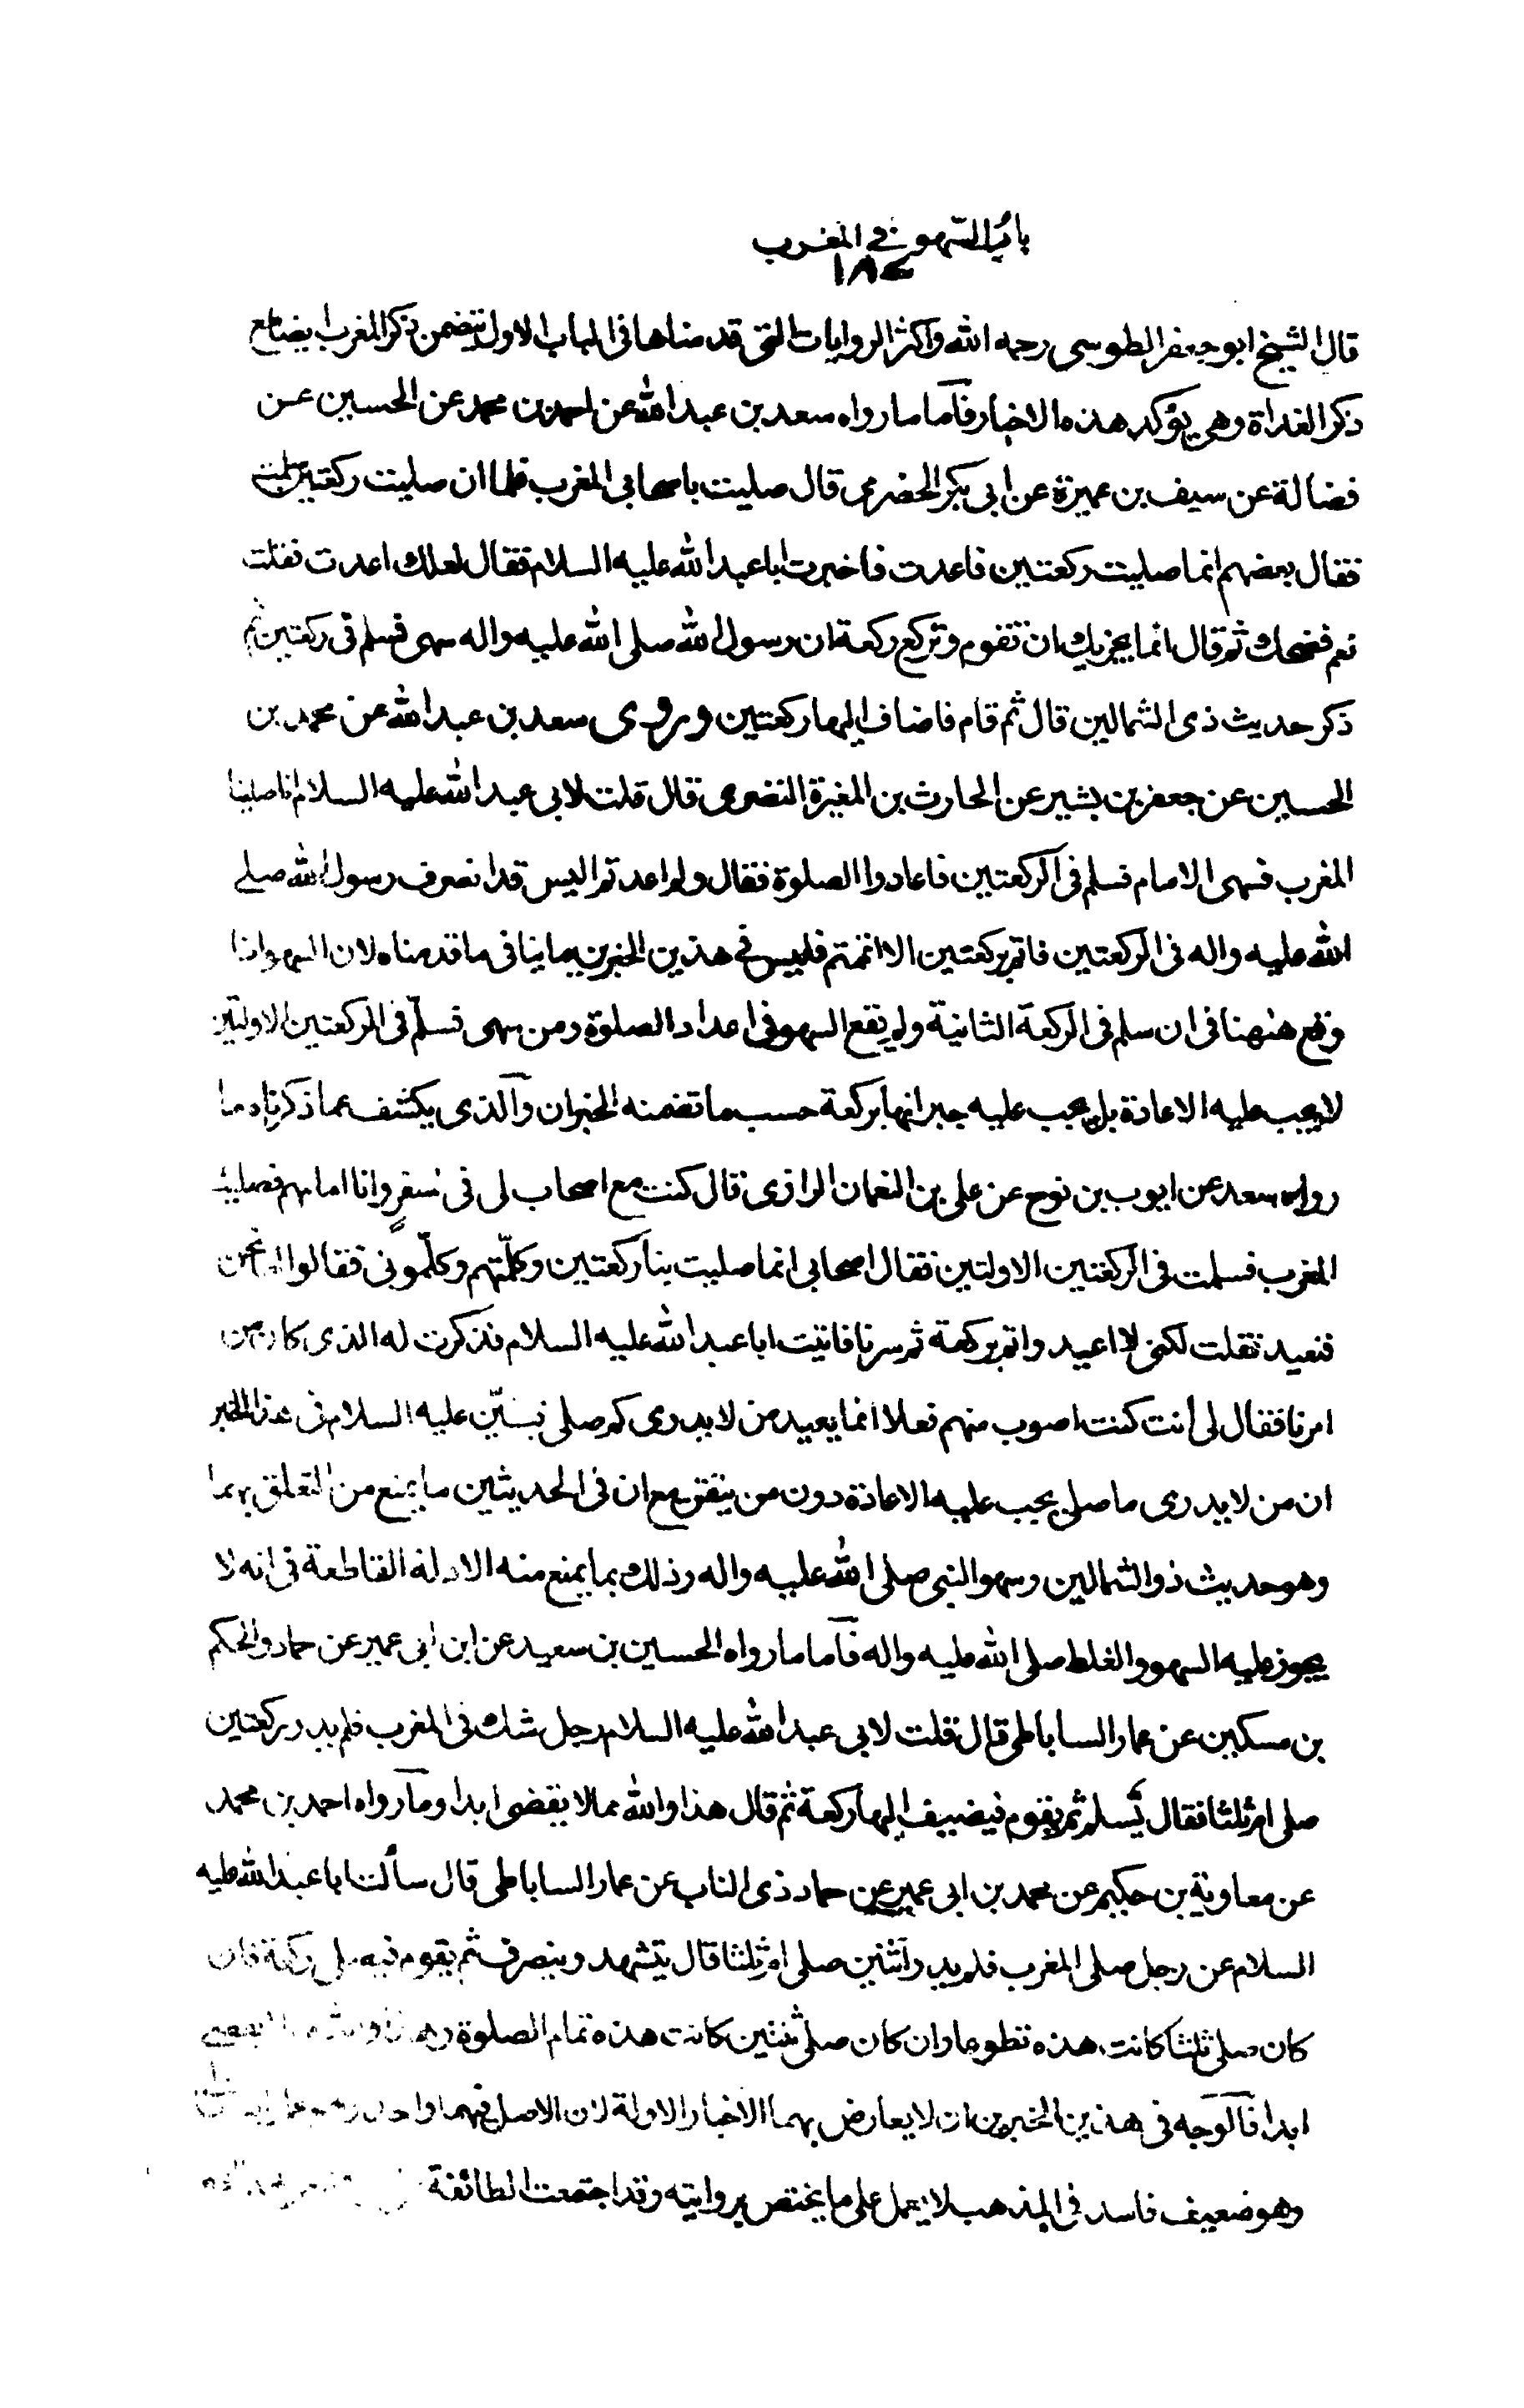 باب السهو في المغرب
١٨٤
قال الشيخ ابو جعفر الطوسى رحمه الله واكثر الروايات التى قد مناها فى الباب الاول يتضمن ذكر المغرب ايضا مع
ذكر الغداة وهى يؤكد هذه الاخبار فآما ما رواه سعد بن عبد الله عن احمد بن محمد عن الحسين عن
فضالة عن سيف بن عميرة عن ابى بكر الحضرمى قال صليت باصحابى المغرب فلما ان صليت ركعتين سلمت
فقال بعضهم انما صليت ركعتين فاعدت فاخبرت ابا عبد الله عليه السلام فقال لعلك اعدت فقلت
نعم فضحك ثم قال انما يجزيك ان تقوم وتركع ركعة ان رسول الله صلى الله عليه واله سهى فسلم فى ركعتين ثم
ذكر حديث ذى الشمالين قال ثم قام فاضاف اليها ركعتين وروى سعد بن عبد الله عن محمد بن
الحسين عن جعفر بن بشير عن الحارث بن المغيرة النضرى قال قلت لابى عبد الله عليه السلام انا صلينا
المغرب فسهى الامام فسلم فى الركعتين فاعادوا الصلوة فقال ولم اعدتم اليس قد انصرف رسول الله صلى
الله عليه واله فى الركعتين فاتم بركعتين الا اتممتم فليس في هذين الخبرين ما ينافى ما قدمناه لان السهو انما
وقع هنهنا فى ان سلم فى الركعة الثانية ولم يقع السهو فى اعداد الصلوة ومن سهى فسلّم فى الركعتين الاولتين
لا يجب عليه الاعادة بل يجب عليه جبرانها بركعة حسب ما تضمنه الخبران وآلذى يكشف عما ذكرناه ما
رواه سعد عن ايوب بن نوح عن على بن النعمان الرازى قال كنت مع اصحاب لى فى سفر وانا امامهم فصليت
المغرب فسلمت فى الركعتين الاولتين فقال اصحابى انما صليت بنا ركعتين وكلّمتهم وكلّمونى فقالوا اما نحن
فنعيد فقلت لكنى لا اعيد واتم بركعة ثم سرنا فاتيت ابا عبد الله عليه السلام فذكرت له الذى كان من
امرنا فقال لى أنت كنت اصوب منهم فعلا انما يعيد من لا يدرى كم صلى فبيّن عليه السلام فى هذا الخبر
ان من لا يدرى ما صلى يجب عليه الاعادة دون من يتيقن مع ان فى الحديثين ما يمنع من التعلق بهما
وهو حديث ذو الشمالين وسهو النبى صلى الله عليه واله وذلك بما يمنع منه الادلة القاطعة فى انه لا
يجوز عليه السهو والغلط صلى الله عليه واله فآما ما رواه الحسين بن سعيد عن ابن ابى عمير عن حماد والحكم
بن مسكين عن عمار الساباطى قال قلت لابى عبد الله عليه السلام رجل شك فى المغرب فلم يدر ركعتين
صلى ام ثلثا فقال يُسلم ثم يقوم فيضيف اليها ركعة ثم قال هذا والله مما لا يقضى ابدا ومآ رواه احمد بن محمد
عن معاوية بن حكيم عن محمد بن ابى عمير عن حماد ذى الناب عن عمار الساباطى قال سألت ابا عبد الله عليه
السلام عن رجل صلى المغرب فلم يدر اثنين صلى ام ثلثا قال يتشهد وينصرف ثم يقوم فيصلى ركعة فان
كان صلى ثلثا كانت هذه تطوعا وان كان صلى ثنتين كانت هذه تمام الصلوة وهذا والله مما لا يقضى
ابدا فآلوجه فى هذين الخبرين ان لا يعارض بهما الاخبار الاولة لان الاصل فيهما واحد وهو عمار
وهو ضعيف فاسد فى المذهب لا يعمل على ما يختص بروايته وقد اجتمعت الطائفة